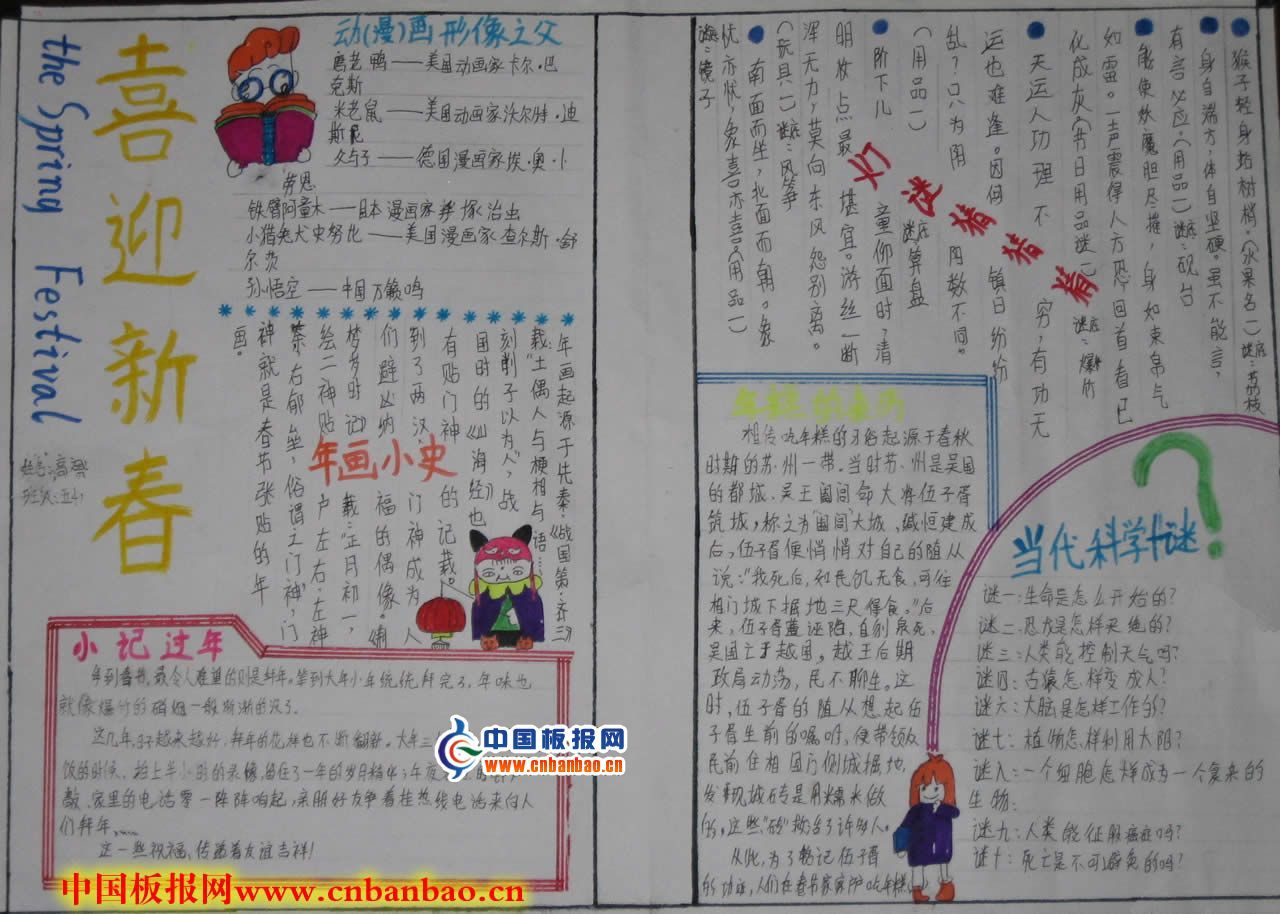 喜迎新春
the Spring Festival
动(漫)画形像之父
唐老鸭——美国动画家卡尔·巴
克斯
米老鼠——美国动画家沃尔特·迪
斯尼
父与子——德国漫画家埃·奥·卜
劳恩
铁臂阿童木——日本漫画家手塚治虫
小猎兔犬史努比——美国漫画家查尔斯·舒
尔茨
孙悟空——中国万籁鸣
年画小史
年画起源于先秦《战国策·齐三》
载:"土偶人与梗相与语……
刻削子以为人",战
国时的《山海经》也
有贴门神的记载。
到了两汉,门神成为人
们避凶纳福的偶像。《荆
梦岁时记》载:"正月初一,
绘二神贴户左右,左神
荼,右郁垒,俗谓之门神",门
神就是春节张贴的年
画。
班级:五(1)
小记过年
年到春节,最令人难望的则是拜年。等到大年小年统统拜完了,年味也
就像爆竹的硝烟一般渐渐的没了。
这几年,日子越来越好,拜年的花样也不断翻新。大年三
饭的时候,拍上半小时的录像,留住了一年的岁月精华;年夜
敲,家里的电话零一阵阵响起,亲朋好友争着挂热线电话来向人
们拜年……
这一些祝福,传递着友谊吉祥!
灯谜猜猜猜
猴子轻身站树梢。(水果名一)谜底:荔枝
身自端方,体自坚硬。虽不能言,
有言必应。(用品一)谜底:砚台
能使妖魔胆尽摧,身如束帛气
如雷。一声震得人方恐,回首看已
化成灰(节日用品谜一)谜底:爆竹
天运人功理不穷,有功无
运也难逢。因何镇日纷纷
乱?只为阴阳数不同。
(用品一)谜底:算盘
阶下儿童仰面时,清
明妆点最堪宜。游丝一断
浑无力,莫向东风怨别离。
(玩具一)谜底:风筝
南面而坐,北面而朝。象
忧亦忧,象喜亦喜。(用品一)
谜底:镜子
年糕的来历
相传吃年糕的习俗起源于春秋
时期的苏州一带。当时苏州是吴国
的都城,吴王阖闾命大将伍子胥
筑城,称之为"阖闾"大城,城恒建成
后,伍子胥便悄悄对自己的随从
说:"我死后,如民饥无食,可往
相门城下掘地三尺得食。"后
来,伍子胥蓋诬陷,自刎身死,
吴国亡于越国,越王后期
政局动荡,民不聊生。这
时,伍子胥的随从想起伍
子胥生前的嘱咐,便带领众
民前往相门侧城掘地,
发现城砖是用糯米做
的。这些"砖"救活了许多人。
从此,为了铭记伍子胥
的功迹,人们在春节家家户户吃年糕
当代科学十谜
?
谜一:生命是怎么开始的?
谜二:恐龙是怎样来绝的?
谜三:人类能控制天气吗?
谜四:古猿怎样变成人?
谜六:大脑是怎样工作的?
谜七:植物怎样利用太阳?
谜八:一个细胞怎样成为一个复杂的
生物:
谜九:人类能征服癌症吗?
谜十:死亡是不可避免的吗?
中国板报网
www.cnbanbao.cn
中国板报网www.cnbanbao.cn